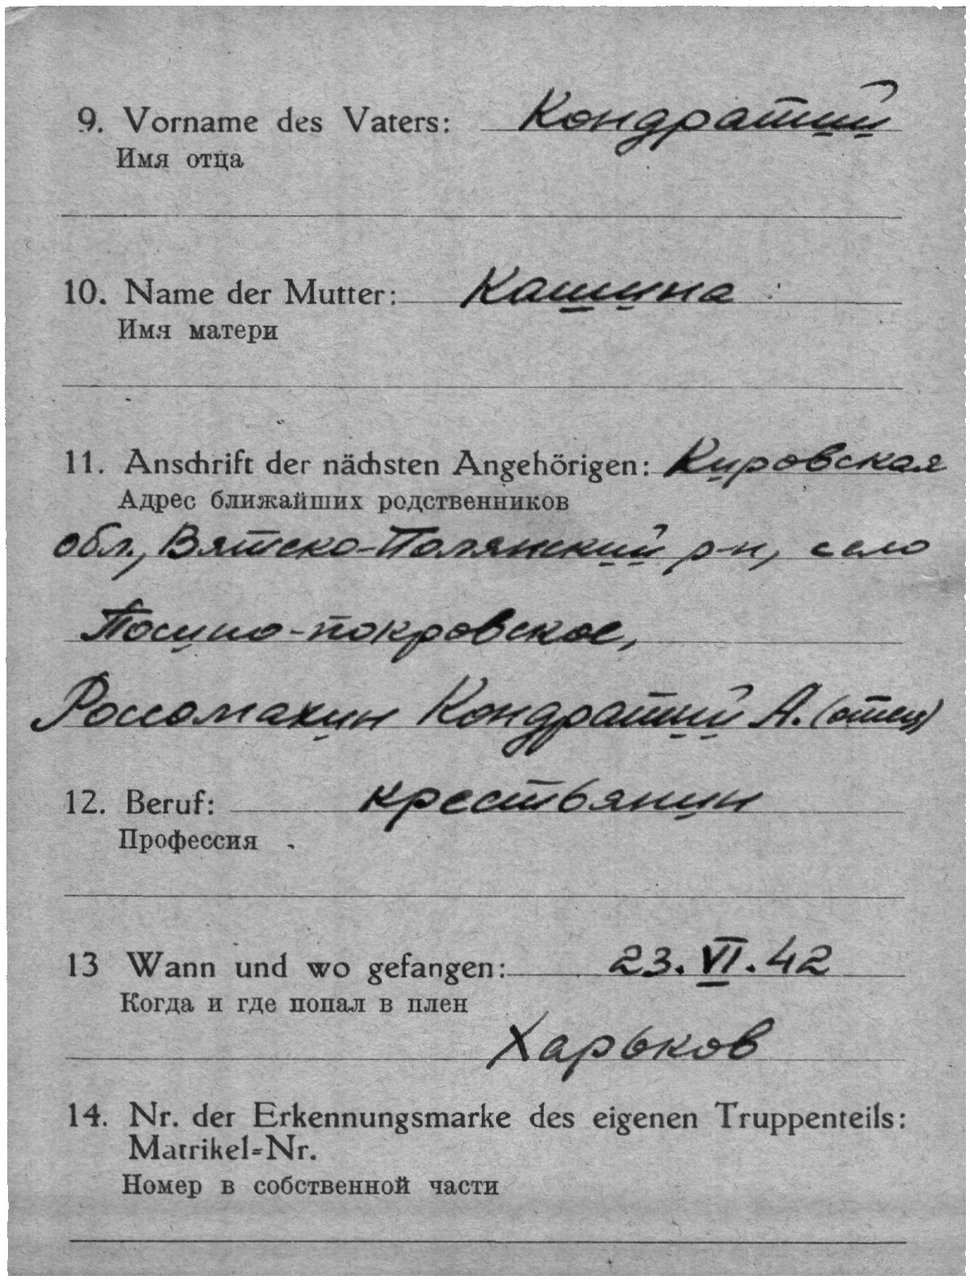 9. Vorname des Vaters: Кондратий
Имя отца
10. Name der Mutter: Кашина
Имя матери
11. Anschrift der nächsten Angehörigen: Кировская
Адрес ближайших родственников
обл., Вятско-Полянский р-н, село
Тосино-покровское,
Россомахин Кондратий А. (отец)
12. Beruf: крестьянин
Профессия
13 Wann und wo gefangen: 23.VI.42
Когда и где попал в плен
Харьков
14. Nr. der Erkennungsmarke des eigenen Truppenteils:
Matrikel=Nr.
Номер в собственной части